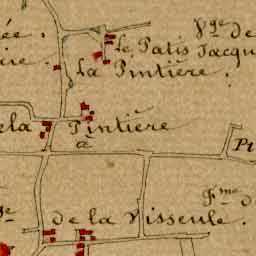 ée. Vge de
Le Patis Jacqu
ire. La Pintière.
ela Pintière
à
Pt
Fme d
de la Visseule.